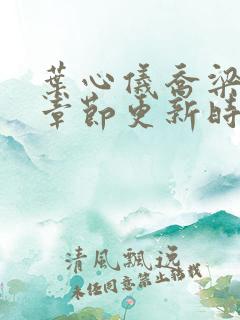 葉心儀喬梁
章節更新時
清風飄逸
未经同意禁止转载